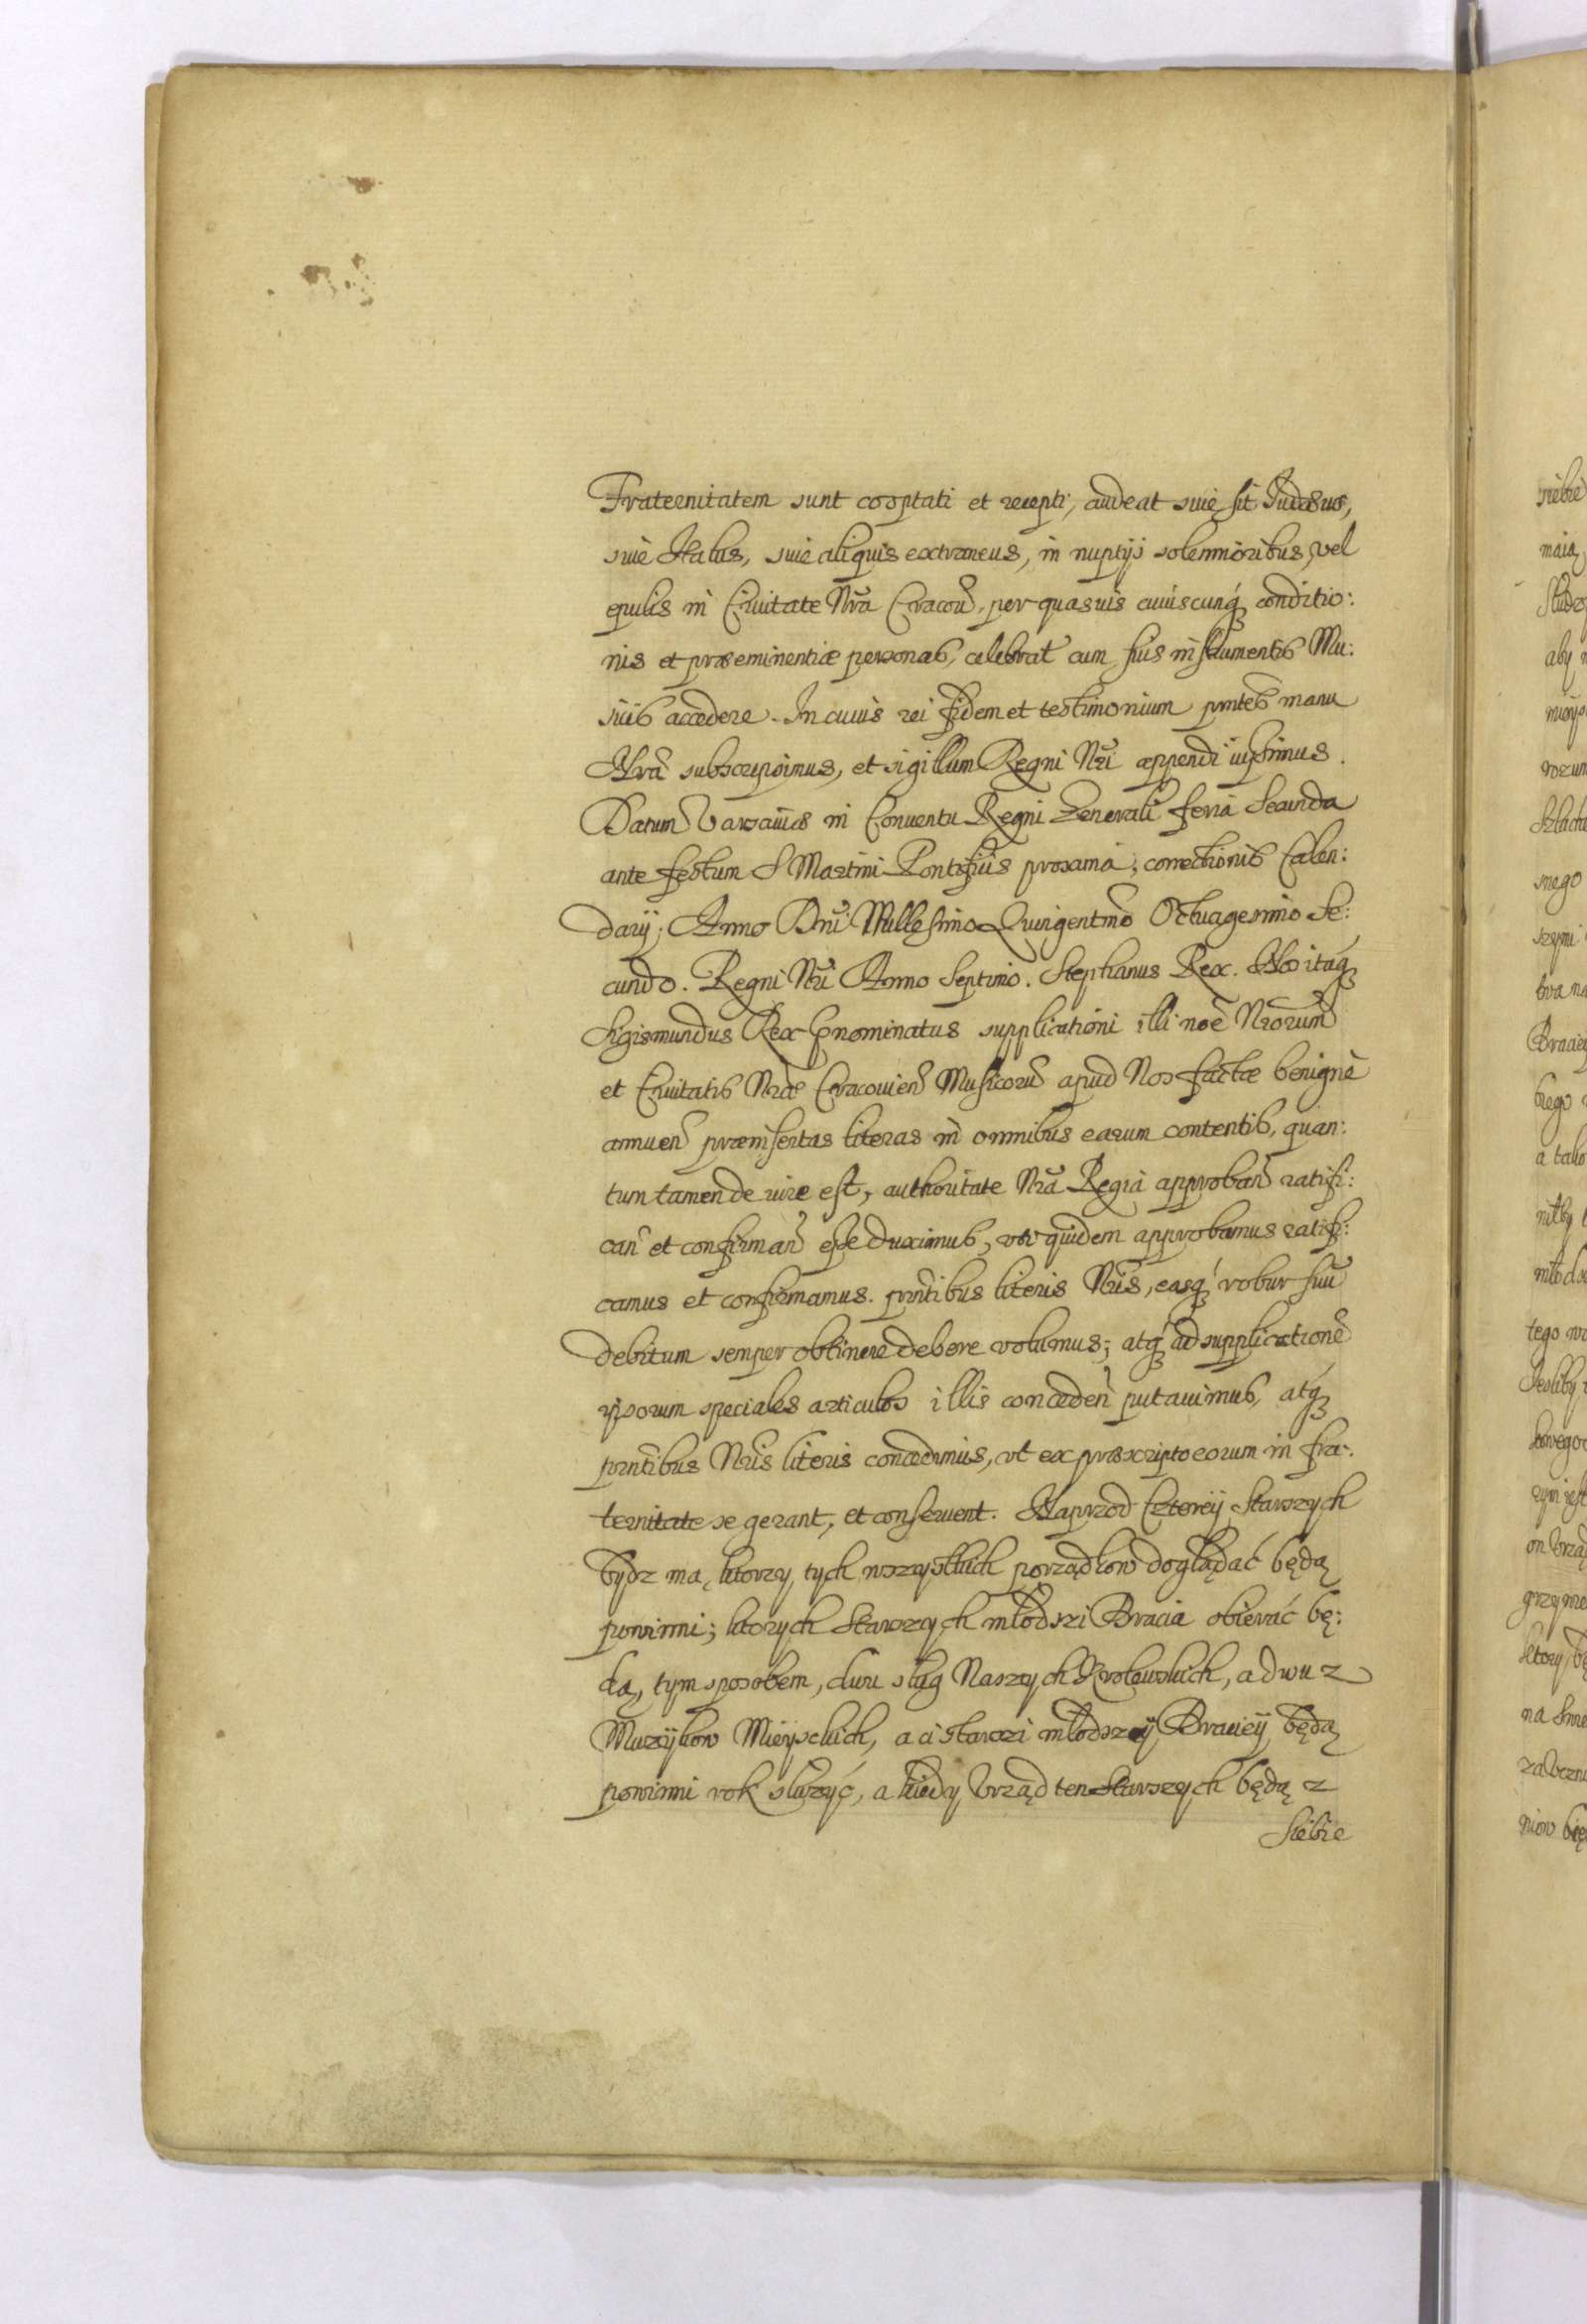 Fraternitatem sunt cooptati et recepti, audeat siue sit Judæus,
siuè Italus, siuè aliquis extraneus, in nuptijs solennioribus, vel
epulis in Ciuitate Nr̃a Cracou̅, per quasuis cuiuscunq́ conditio:
nis et præeminentiæ personas, celebrat̃ cum suis instrumentis Mu:
sicis accedere. In cuius rei fidem et testimonium pn̄tes manu
Nr̃a subscripsimus, et sigillum Regni Nr̃i appendi iussimus.
Datum Varsauiæ in Conuentu Regni Generali feria Secunda
ante festum S Martini Pontificis proxima, correctionis Calen:
darij, Anno Dn̄i Millesimo Quingentmo Octuagesimo Se:
cundo. Regni Nr̃i Anno Septimo. Stephanus Rex. Nos itaq́
Sigismundus Rex p̱nominatus supplicationi illi noē Nr̃orum
et Ciuitatis Nr̃æ Cracouień Musicorū apud Nos factæ benignè
annueń præinsertas literas in omnibus earum contentis, quan:
tum tamen de iure est, authoritate Nr̃a Regia approbań ratifi:
cań et confirmań esse duximus, vti quidem approbamus ratifi:
camus et confirmamus. pn̄tibus literis Nr̃is, easq́ robur suū
debitum semper obtinere debere volumus; atq́ ad supplicationē
ipsorum speciales articulos illis concedeń putauimus, atq́
prn̄tibus Nr̃is literis concedimus, vt ex præscripto eorum in fra:
ternitate se gerant, et conseruent. Naprzod Czterey Starszych
bydz ma, ktorzy tych wszystkich porządkow doglądać będą
powinni; ktorych Starszych młodszi Bracia obierać bę:
dą, tym sposobem, dwu sług Naszych Krolewskich, a dwu z
Muzykow Mieyskich, a ci starszi młodszey Braciey będą
powinni rok służyć, a kiedy Vrząd ten Starszych będą z
Siebie